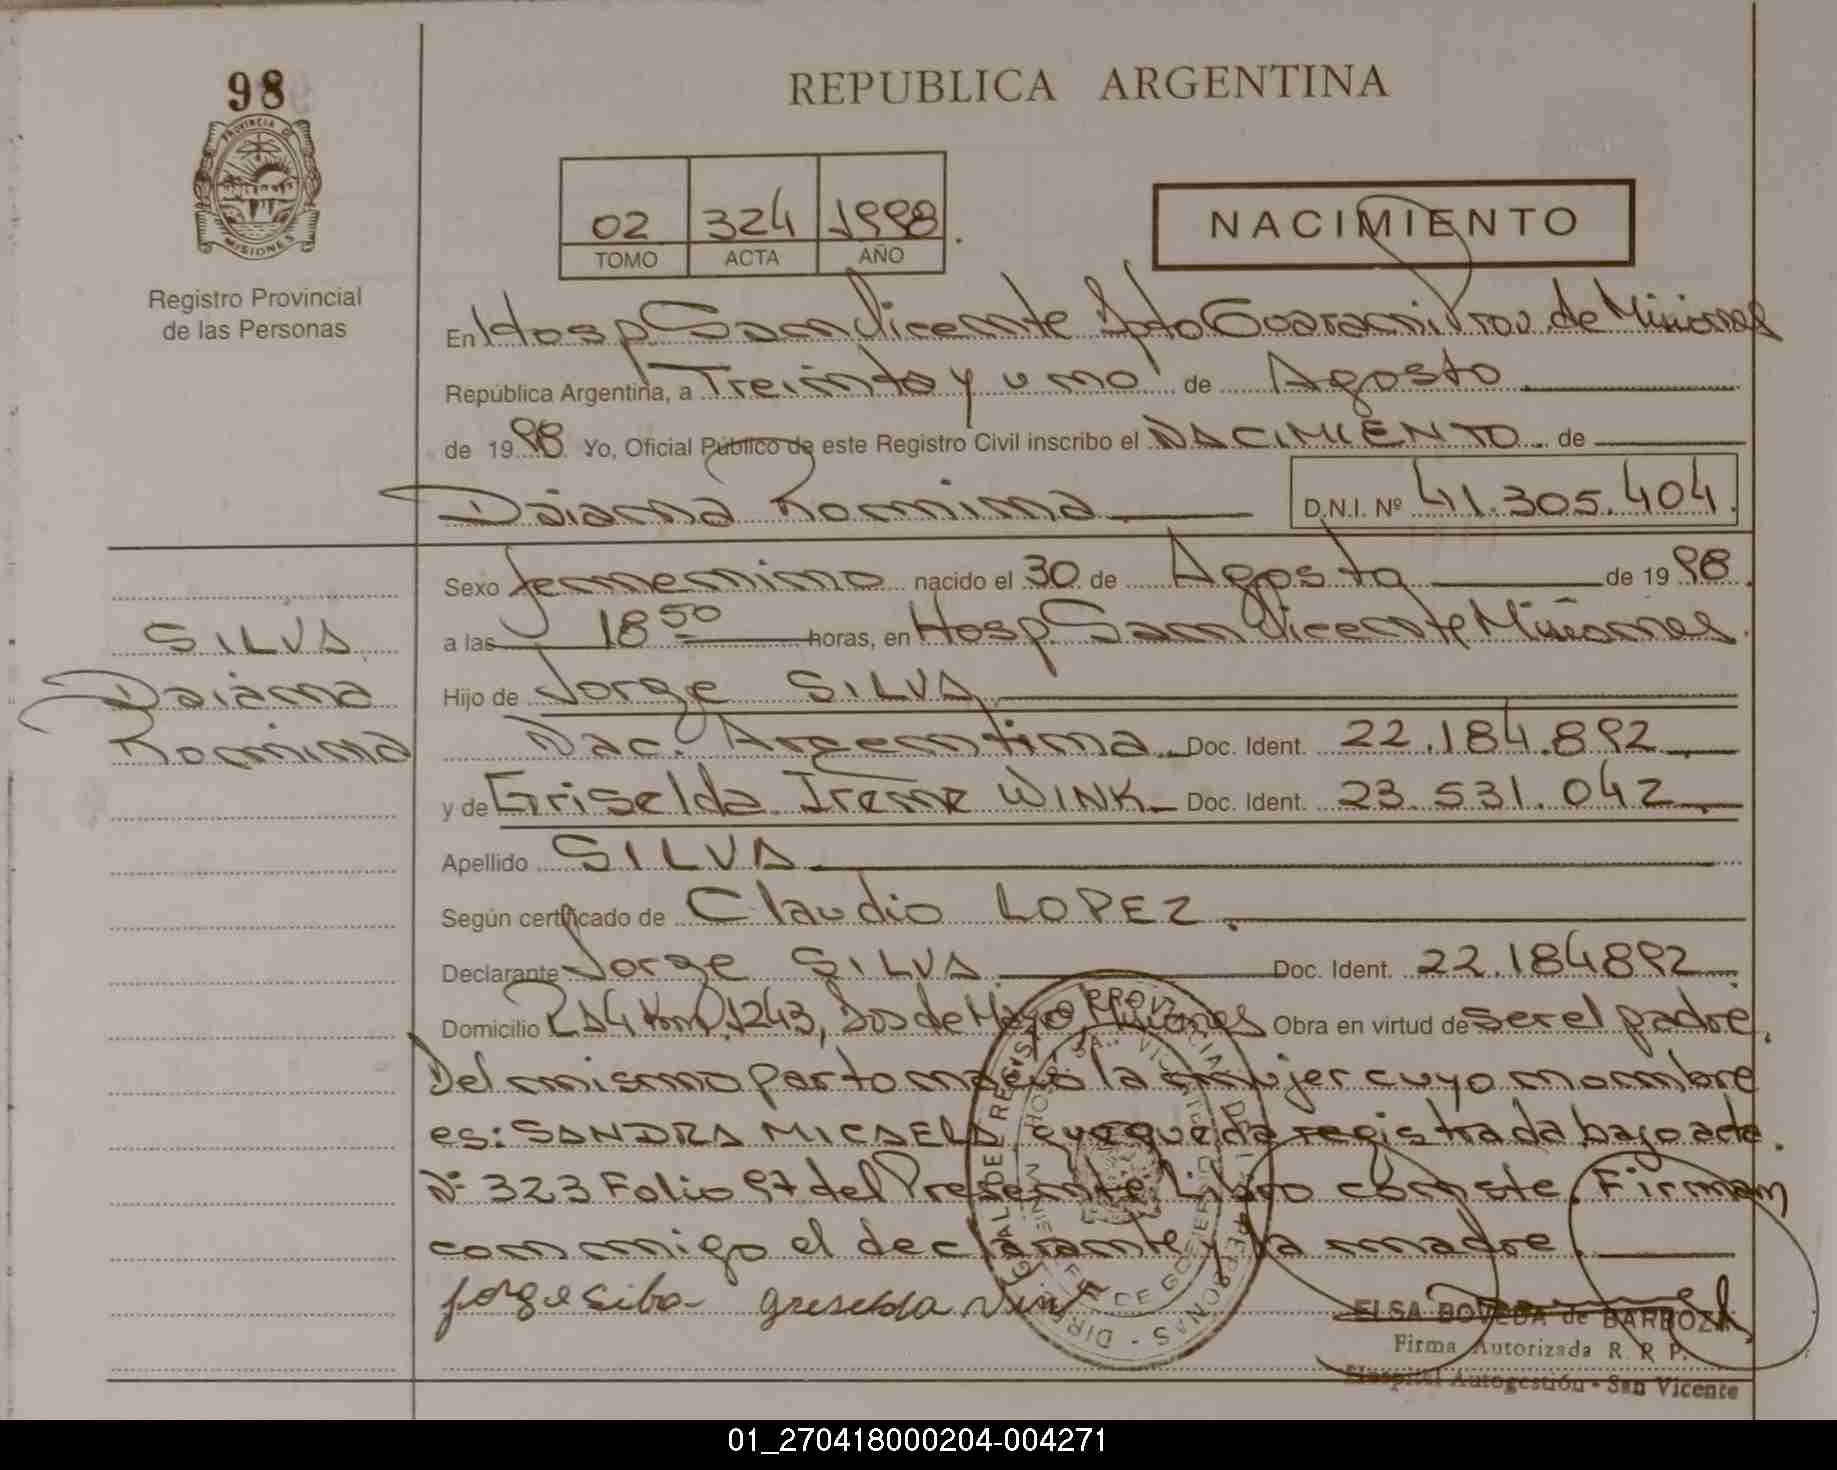 98
REPUBLICA ARGENTINA
PROVINCIA D
MISIONES
Registro Provincial
de las Personas
02 324 1998
TOMO ACTA AÑO
NACIMIENTO
En Hosp San Vicente Dpto Guarani Prov. de Misiones
República Argentina, a Treinta y uno de Agosto
de 1998 Yo, Oficial Público de este Registro Civil inscribo el NACIMIENTO de
Daiana Romina D.N.I. Nº 41.305.404
Sexo femenino nacido el 30 de Agosto de 1998.
a las 18 50 horas, en Hosp San Vicente Misiones.
SILVA
Daiana
Romina
Hijo de Jorge SILVA
Nac. Argentina Doc. Ident. 22.184.892
y de Griselda Irene WINK Doc. Ident. 23.531.042
Apellido SILVA
Según certificado de Claudio LOPEZ.
Declarante Jorge SILVA Doc. Ident. 22.184892
Domicilio Km 1243, Dos de Mayo, Misiones Obra en virtud de ser el padre.
Del mismo parto nacio la mujer cuyo nombre
es: SANDRA MICAELA, que queda registrada bajo acta.
Nº 323 Folio 97 del Presente Libro conste. Firman
conmigo el declarante y la madre.
jorge silva griselda
ELSA BOVEDA de BARBOZA
Firma Autorizada R. P. P.
Hospital Autogestión - San Vicente
01_270418000204-004271